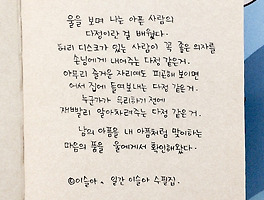 울을 보며 나는 아픈 사람의
다정이란 걸 배웠다.
허리 디스크가 있는 사람이 꼭 좋은 의자를
손님에게 내어주는 다정 같은 거.
아무리 즐거운 자리에도 피곤해 보이면
어서 집에 들여보내는 다정 같은거.
누군가가 무리하기 전에
재빨리 알아차려주는 다정 같은거.
남의 아픔을 내 아픔처럼 맞이하는
마음의 품을 울에게서 확인해왔다.
©이슬아, 일간 이슬아 수필집.